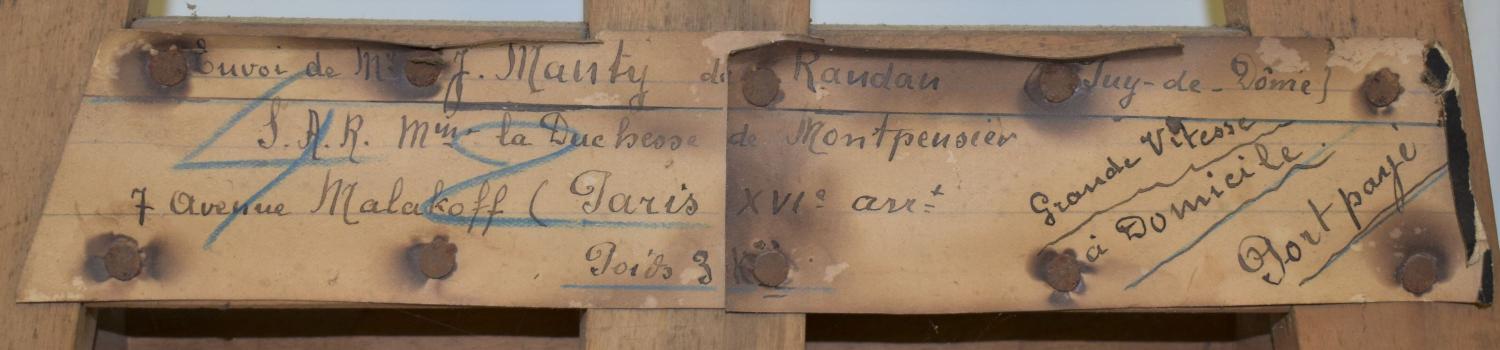 Envoi de Mr J. Manty de Randan (Puy-de-Dôme)
S.A.R. Mme la Duchesse de Montpensier
7 Avenue Malakoff (Paris XVIe arrt
Poids 3 K
Grande Vitesse
à Domicile.
Port payé
42